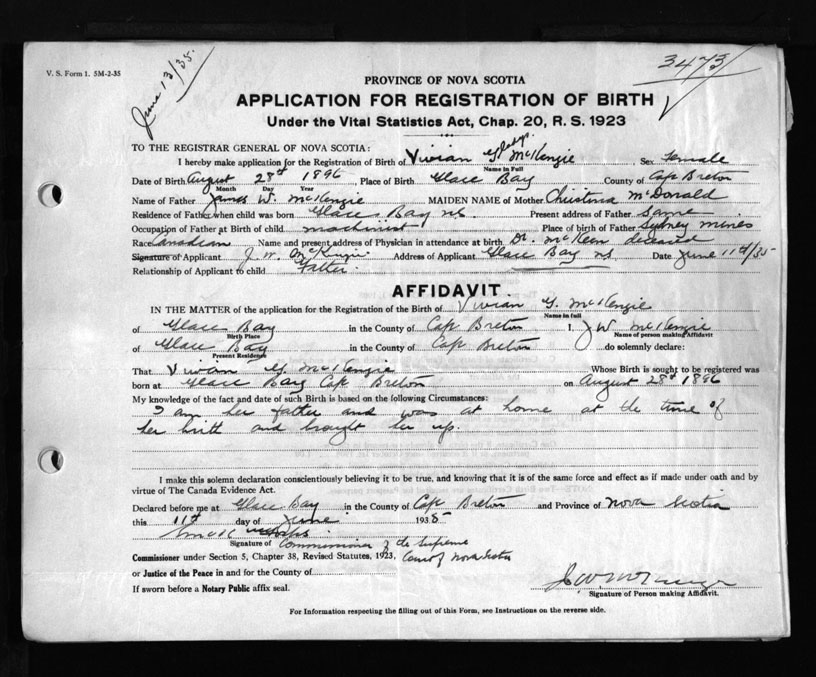 V. S. Form 1. 5M-2-35
June 13/35.
3473
PROVINCE OF NOVA SCOTIA
APPLICATION FOR REGISTRATION OF BIRTH
Under the Vital Statistics Act, Chap. 20, R. S. 1923
TO THE REGISTRAR GENERAL OF NOVA SCOTIA:
Gladys
I hereby make application for the Registration of Birth of Vivian G. McKenzie Sex Female
Name in Full
Date of Birth August 28th 1896 Place of Birth Glace Bay County of Cap Breton
Month Day Year
Name of Father James W. McKenzie MAIDEN NAME of Mother Christena McDonald
Residence of Father when child was born Glace Bay NS Present address of Father Same
Occupation of Father at Birth of child machinist Place of birth of Father Sydney mines
Race Canadian Name and present address of Physician in attendance at birth Dr. McKeen deceased
Signature of Applicant J. W. McKenzie Address of Applicant Glace Bay NS Date June 11th/35
Relationship of Applicant to child Father.
AFFIDAVIT
IN THE MATTER of the application for the Registration of the Birth of Vivian G. McKenzie
Name in full
of Glace Bay in the County of Cap Breton I, J W McKenzie
Birth Place Name of person making Affidavit
of Glace Bay in the County of Cap Breton do solemnly declare:
Present Residence
That Vivian G. McKenzie Whose Birth is sought to be registered was
born at Glace Bay Cap Breton on August 28th 1896
My knowledge of the fact and date of such Birth is based on the following Circumstances:
I am her father and was at home at the time of
her birth and brought her up.
I make this solemn declaration conscientiously believing it to be true, and knowing that it is of the same force and effect as if made under oath and by
virtue of The Canada Evidence Act.
Declared before me at Glace Bay in the County of Cap Breton and Province of Nova Scotia
this 11th day of June 1935
Signature of Commissioner of the Supreme
Commissioner under Section 5, Chapter 38, Revised Statutes, 1923, Court of Nova Scotia
or Justice of the Peace in and for the County of
J W McKenzie
If sworn before a Notary Public affix seal.
Signature of Person making Affidavit.
For Information respecting the filling out of this Form, see Instructions on the reverse side.